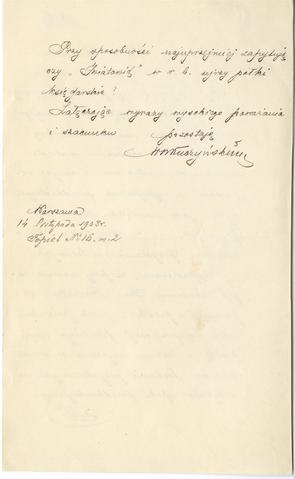 Przy sposobności najuprzejmiej zapytuję
czy „Światowit” w r. b. ujrzy półki
księgarskie?
Załączając wyrazy wysokiego poważania
i szacunku pozostaję
Warszawa
14 listopada 1903 r.
Topiel № 16. m. 2